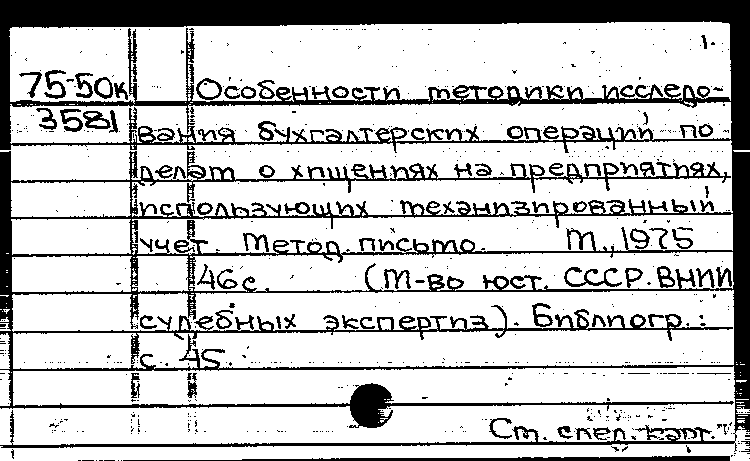 1.
75-50к Особенности методики исследо-
3581 вания бухгалтерских операций по
делам о хищениях на предприятиях,
использующих механизированный
учет. Метод. письмо. М., 1975
46с. (М-во юст. СССР. ВНИИ
судебных экспертиз). Библиогр.:
с. 45.
Ст. спец. карт.